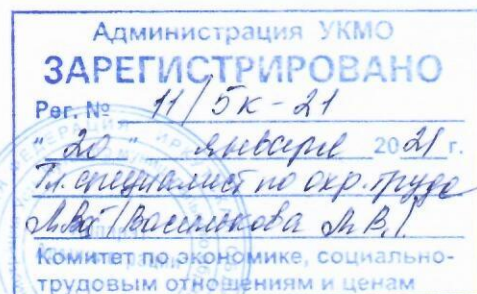 Администрация УКМО
ЗАРЕГИСТРИРОВАНО
Рег. № 11/5к-21
"20" января 2021 г.
Гл. специалист по охр. труда
/Василькова М.В./
Комитет по экономике, социально-
трудовым отношениям и ценам